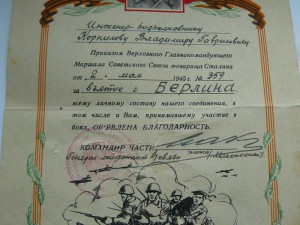 Инженер-подполковнику
Корнилову Владимиру Гавриловичу
Приказом Верховного Главнокомандующего
Маршала Советского Союза товарища Сталина
от 2 мая 1945 г. № 359
за взятие г. Берлина
всему личному составу нашего соединения, в
том числе и Вам, принимавшему участие в
боях, ОБ'ЯВЛЕНА БЛАГОДАРНОСТЬ.
КОМАНДИР ЧАСТИ
(подпись)
Генерал-лейтенант